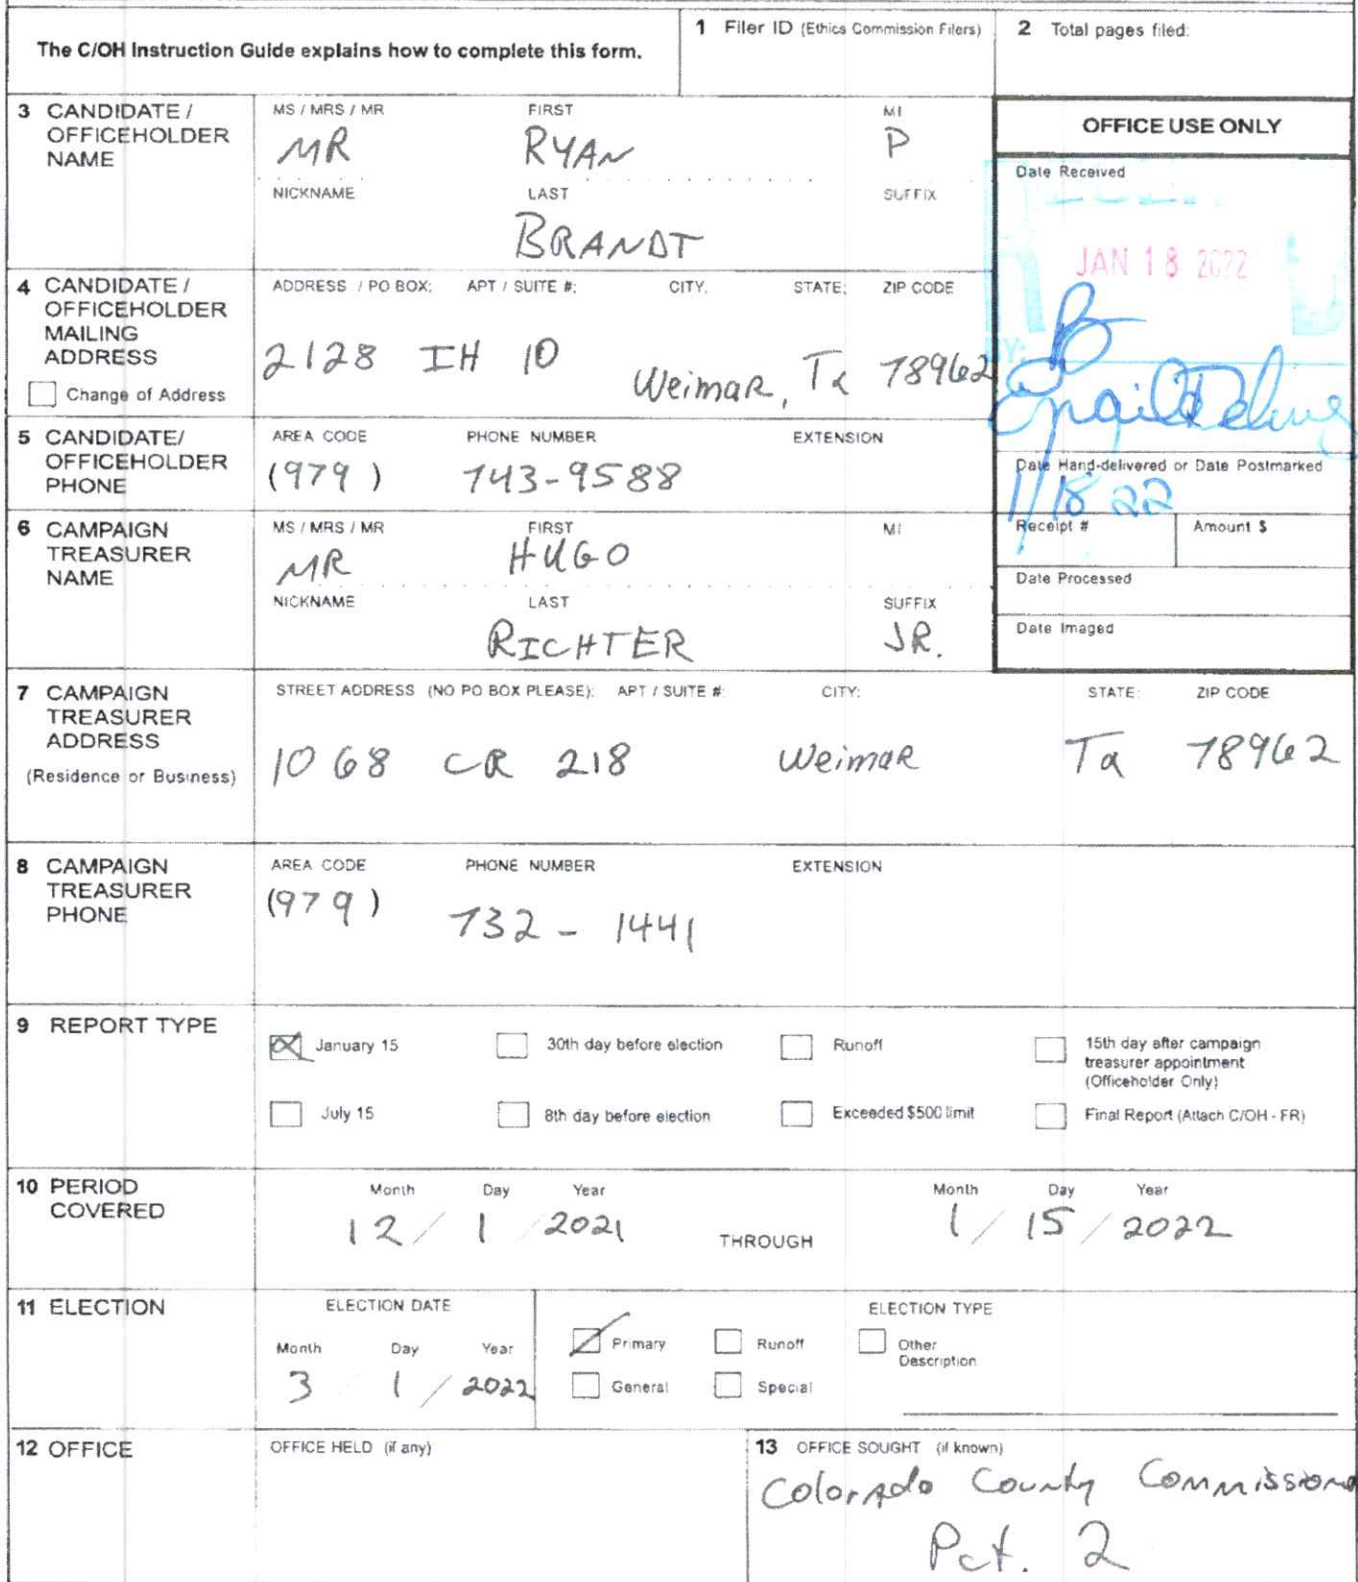 The C/OH Instruction Guide explains how to complete this form.
1 Filer ID (Ethics Commission Filers)
2 Total pages filed:
3 CANDIDATE / OFFICEHOLDER NAME
MS / MRS / MR FIRST MI
MR RYAN P
NICKNAME LAST SUFFIX
BRANDT
OFFICE USE ONLY
Date Received
JAN 18 2022
BY:
Date Hand-delivered or Date Postmarked
1/18 22
Receipt # Amount $
Date Processed
Date Imaged
4 CANDIDATE / OFFICEHOLDER MAILING ADDRESS
Change of Address
ADDRESS / PO BOX; APT / SUITE #; CITY; STATE; ZIP CODE
2128 IH 10 Weimar, Tx 78962
5 CANDIDATE/ OFFICEHOLDER PHONE
AREA CODE PHONE NUMBER EXTENSION
(979) 743-9588
6 CAMPAIGN TREASURER NAME
MS / MRS / MR FIRST MI
MR HUGO
NICKNAME LAST SUFFIX
RICHTER JR.
7 CAMPAIGN TREASURER ADDRESS
(Residence or Business)
STREET ADDRESS (NO PO BOX PLEASE); APT / SUITE #; CITY; STATE; ZIP CODE
1068 CR 218 Weimar Tx 78962
8 CAMPAIGN TREASURER PHONE
AREA CODE PHONE NUMBER EXTENSION
(979) 732-1441
9 REPORT TYPE
January 15 30th day before election Runoff 15th day after campaign treasurer appointment (Officeholder Only)
July 15 8th day before election Exceeded $500 limit Final Report (Attach C/OH - FR)
10 PERIOD COVERED
Month Day Year Month Day Year
12 / 1 / 2021 THROUGH 1 / 15 / 2022
11 ELECTION
ELECTION DATE
Month Day Year
3 / 1 / 2022
ELECTION TYPE
Primary Runoff Other Description
General Special
12 OFFICE
OFFICE HELD (if any)
13 OFFICE SOUGHT (if known)
Colorado County Commissione
Pct. 2